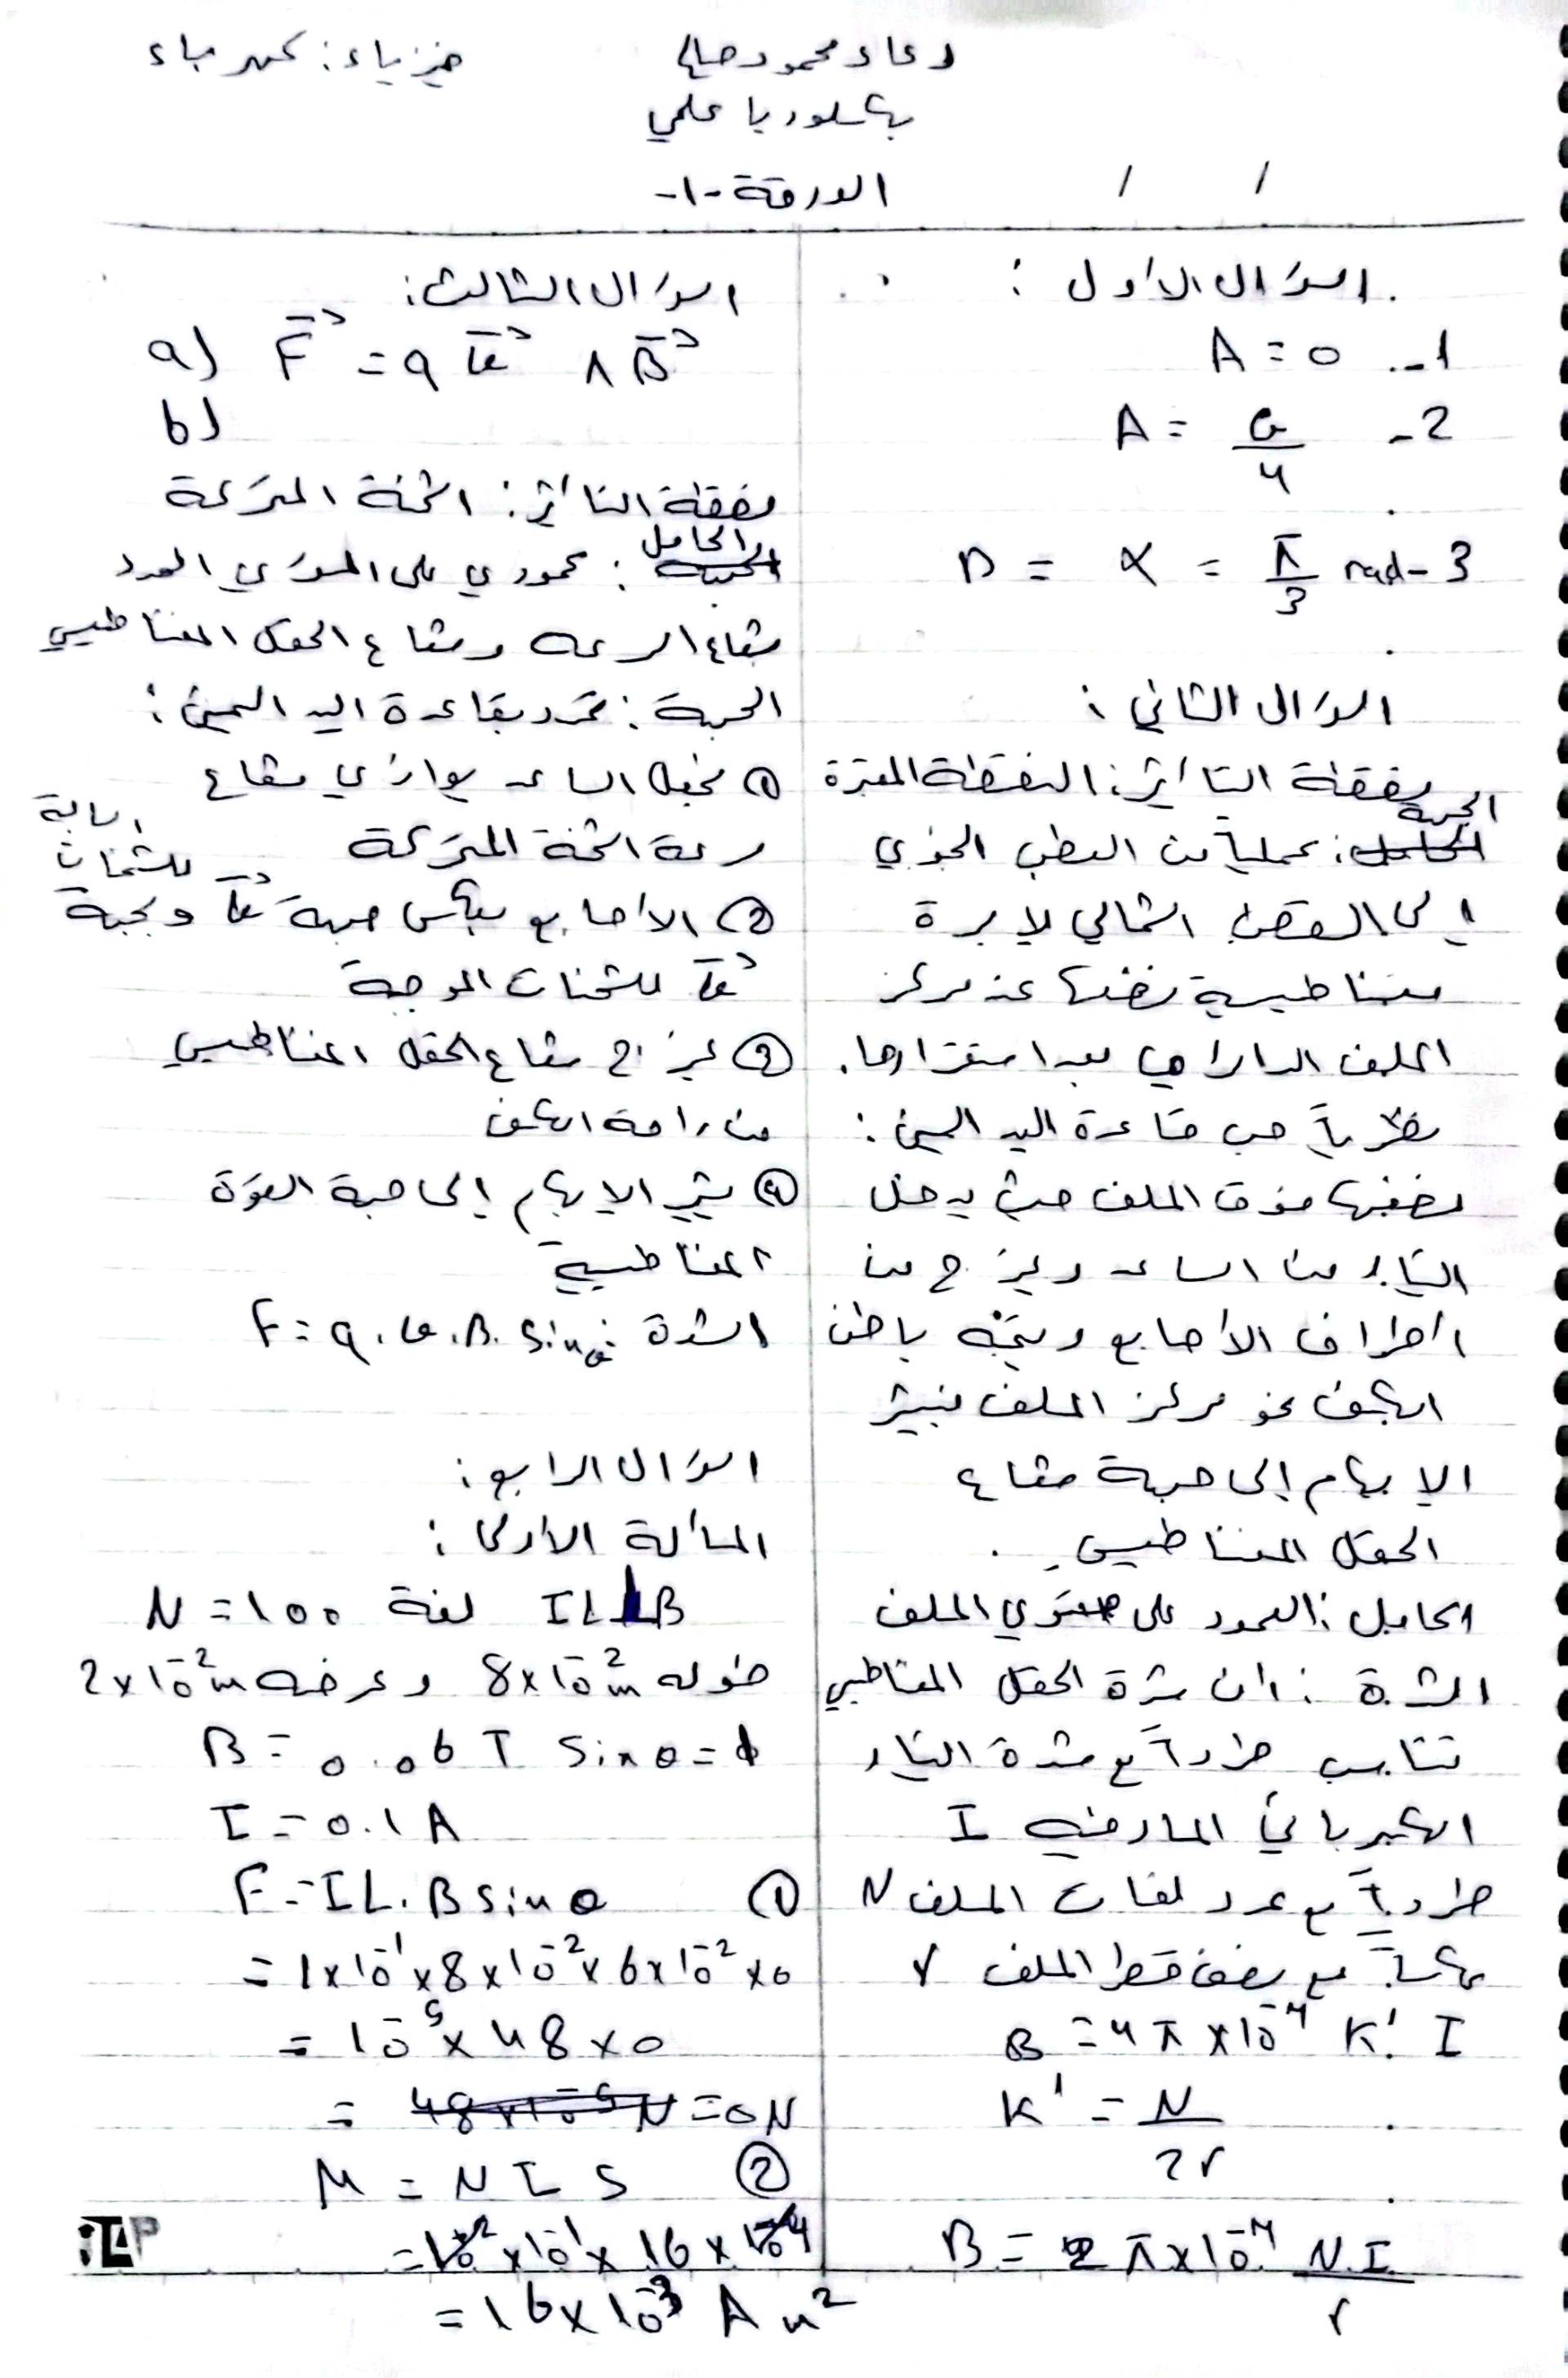 دعاء محمود صالح
فيزياء: كهرباء
بكالوريا علمي
/ /
الورقة -1-
السؤال الأول:
1- A = 0
2- A = G/4
3- B = α = π/3 rad
السؤال الثاني:
نقطة التأثير: النقطة المعتبرة
الجهة: عملياً من القطب الجنوبي
إلى القطب الشمالي لإبرة
مغناطيسية نضعها عند مركز
الملف الدائري بعد استقرارها.
نظرياً حسب قاعدة اليد اليمنى:
نضعها فوق الملف حيث يدخل
التيار من الساعد ويخرج من
أطراف الأصابع ويتجه باطن
الكف نحو مركز الملف فيشير
الإبهام إلى جهة شعاع
الحقل المغناطيسي.
الحامل: العمود على مستوي الملف
الشدة: ان شدة الحقل المغناطيسي
تتناسب طرداً مع شدة التيار
الكهربائي المار فيه I
طرداً مع عدد لفات الملف N
عكساً مع نصف قطر الملف r
B = 4π×10⁻⁷ K' I
K' = N/2r
B = 2π×10⁻⁷ N.I/r
السؤال الثالث:
a) F⃗ = q v⃗ ∧ B⃗
b)
نقطة التأثير: الشحنة المتحركة
الحامل: عمودي على المستوي المحدد
بشعاع السرعة وشعاع الحقل المغناطيسي
الجهة: تحدد بقاعدة اليد اليمنى:
① نجعل الساعد يوازي شعاع
سرعة الشحنة المتحركة
② الأصابع بعكس جهة v⃗ للشحنات السالبة وبجهة
v⃗ للشحنات الموجبة
③ يخرج شعاع الحقل المغناطيسي
من راحة الكف
④ يشير الإبهام إلى جهة القوة
المغناطيسية
الشدة: F = q.v.B.sinθ
السؤال الرابع:
المسألة الأولى:
IL⊥B لفة N = 100
طوله 8×10⁻²m وعرضه 2×10⁻²m
B = 0.06 T sinθ = 0
I = 0.1 A
① F = IL.B sinθ
= 1×10⁻¹×8×10⁻²×6×10⁻²×0
= 10⁻⁵×48×0
= 48×10⁻⁵N = 0N
② M = N I S
= 10²×10⁻¹×16×10⁻⁴
= 16×10⁻³ A m²
iTAP